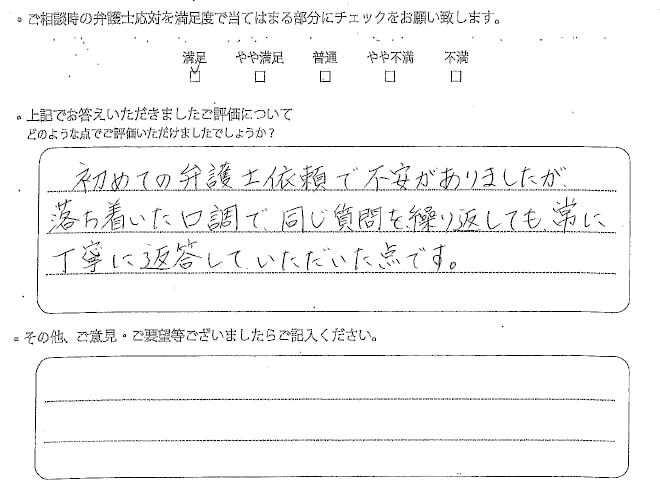 。ご相談時の弁護士応対を満足度で当てはまる部分にチェックをお願い致します。
満足 やや満足 普通 やや不満 不満
。上記でお答えいただきましたご評価について
どのような点でご評価いただけましたでしょうか？
初めての弁護士依頼で不安がありましたが、
落ち着いた口調で、同じ質問を繰り返しても、常に
丁寧に返答していただいた点です。
。その他、ご意見・ご要望等ございましたらご記入ください。